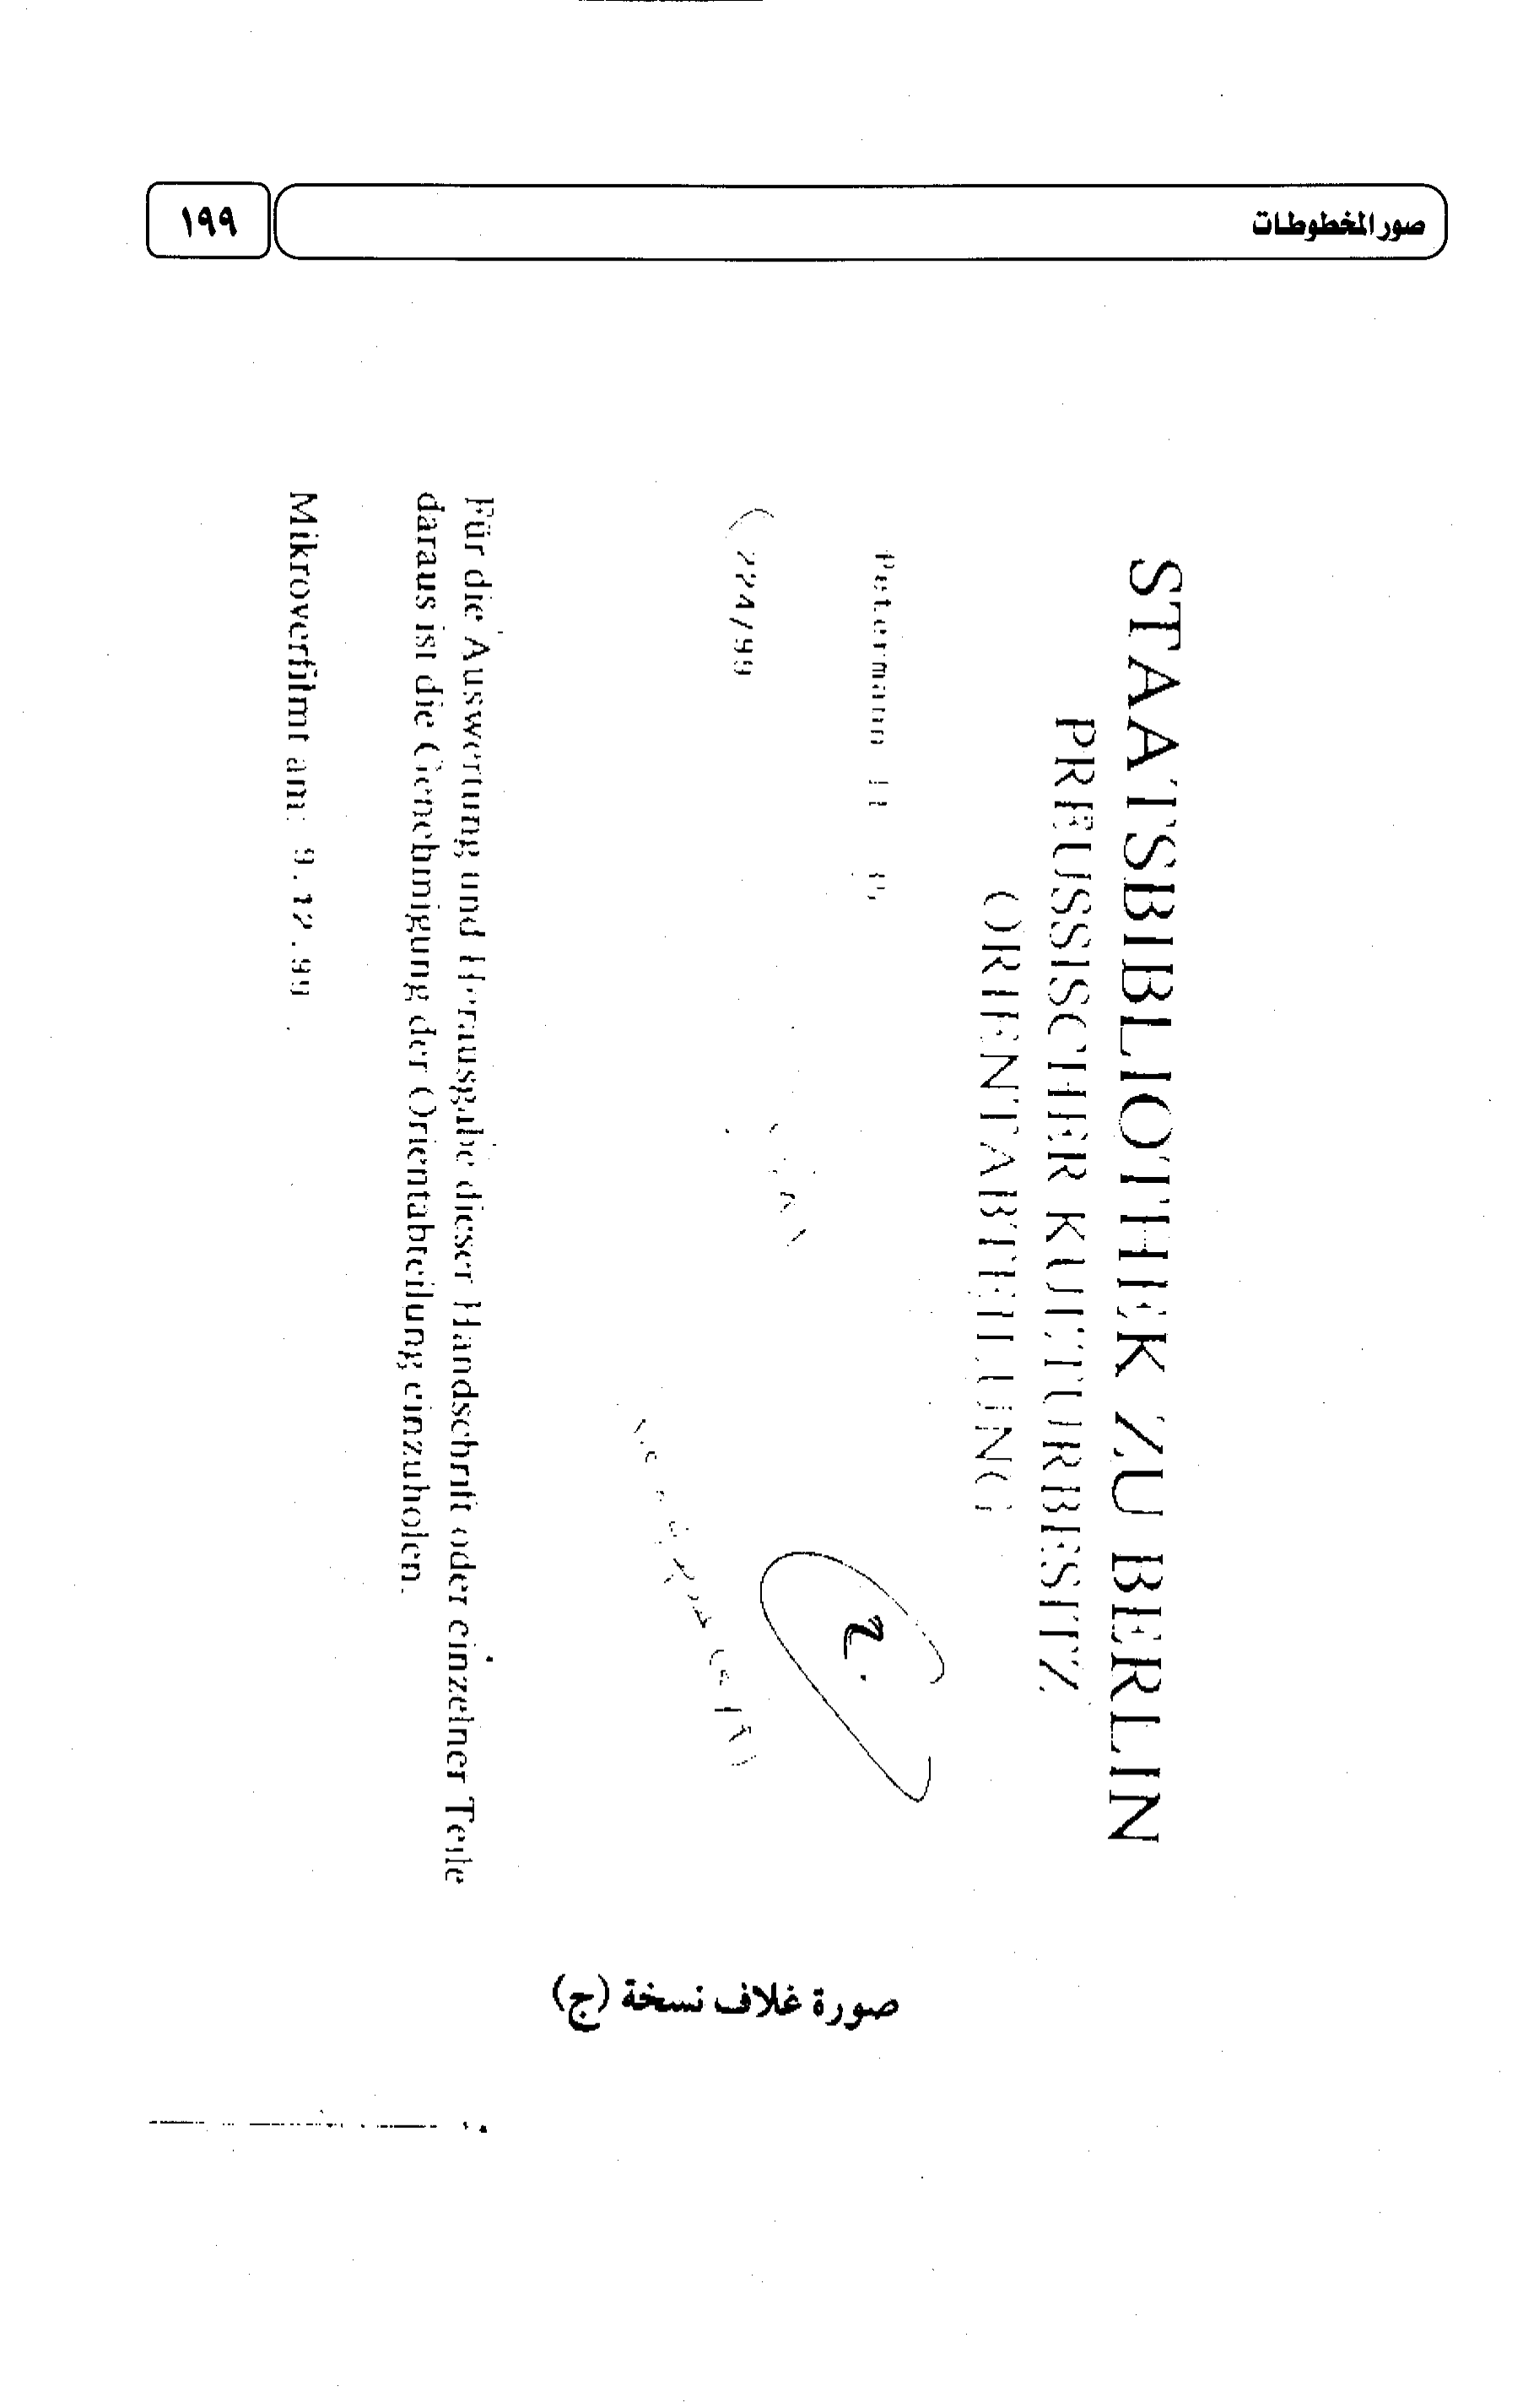 صور المخطوطات
١٩٩
STAATSBIBLIOTHEK ZU BERLIN
PREUSSISCHER KULTURBESITZ
ORIENTABTEILUNG
Petermann II
224/99
Für die Auswertung und Herausgabe dieser Handschrift oder einzelner Teile
daraus ist die Genehmigung der Orientabteilung einzuholen.
Mikroverfilmt am: 9.12.99
صورة غلاف نسخة (ج)